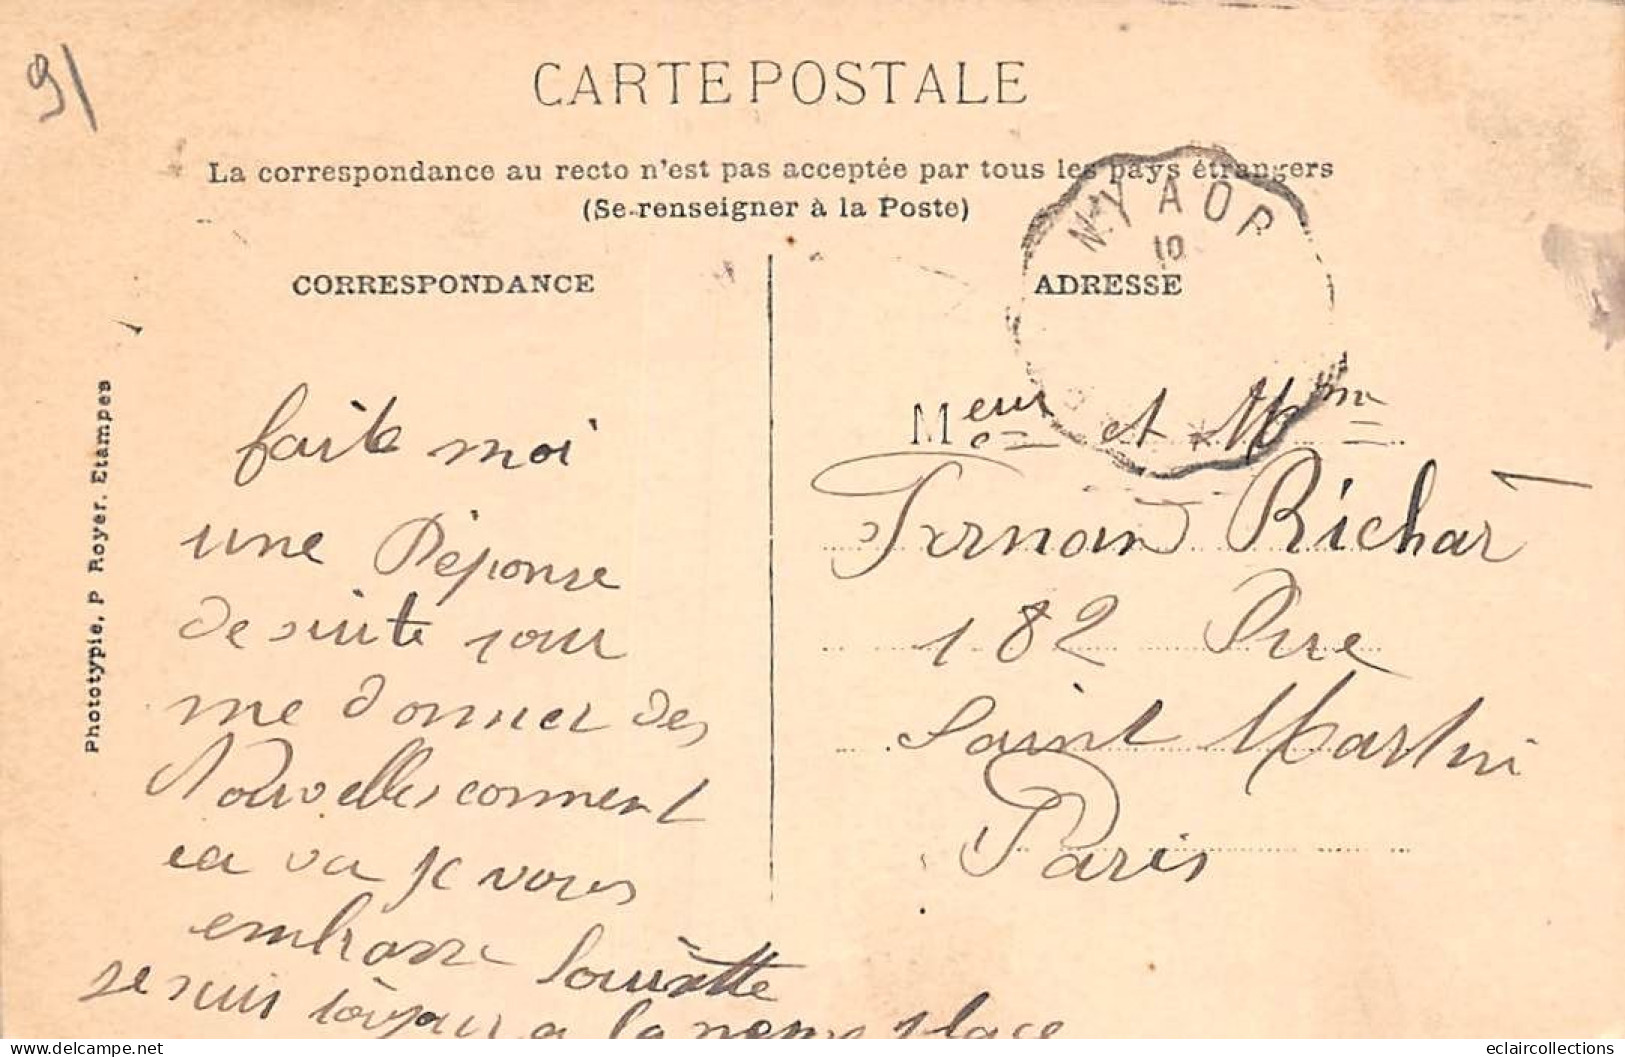 91
CARTE POSTALE
La correspondance au recto n'est pas acceptée par tous les pays étrangers
(Se renseigner à la Poste)
CORRESPONDANCE
ADRESSE
10
Phototypie, P Royer. Etampes
faite moi
une Réponse
de suite pour
me donner des
Nouvelles comment
ca va je vous
embrasse Louisette
je suis toujour a la meme place
Meur et Mme
Fernand Richar
182 Rue
Saint Martin
Paris
eclaircollections
delcampe.net